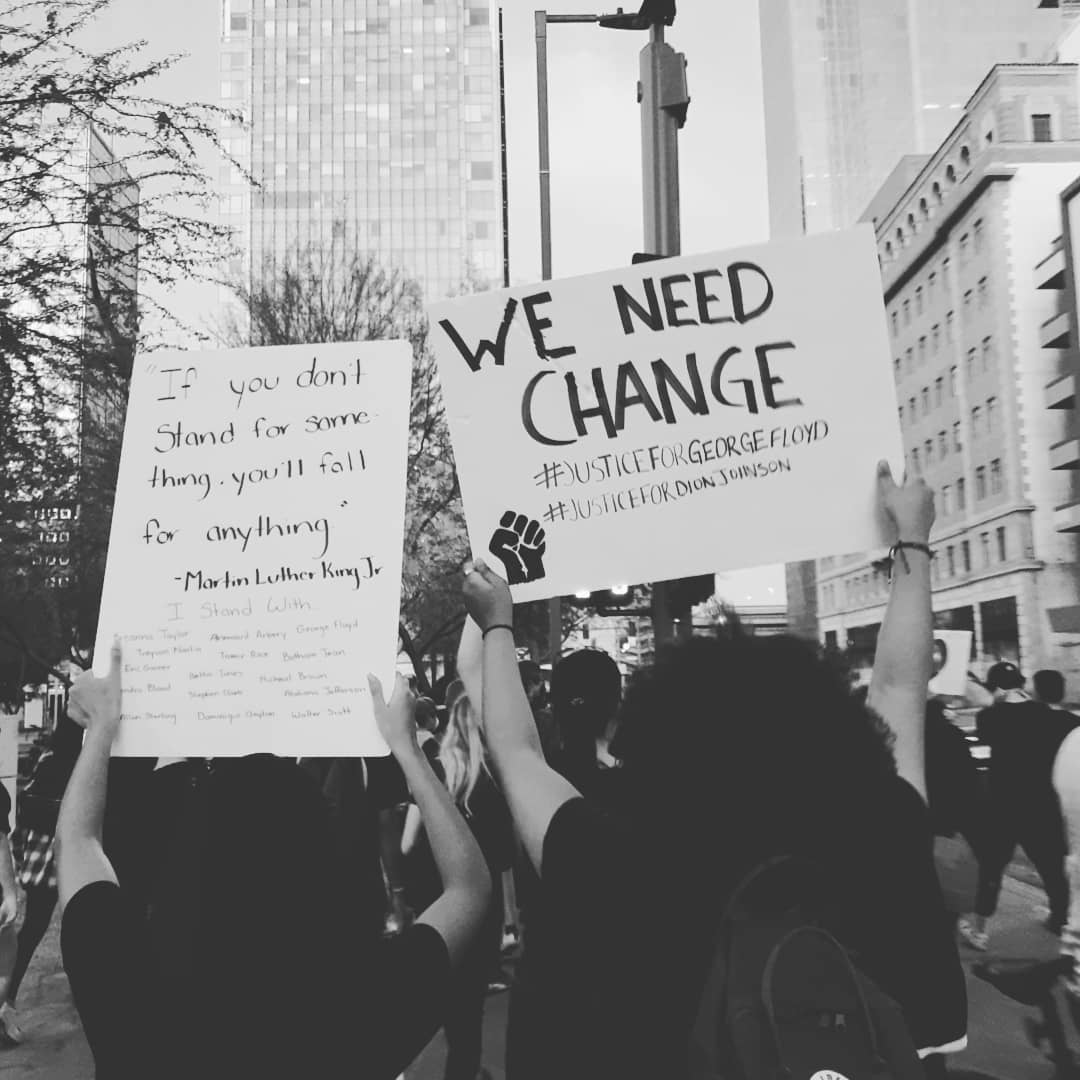 "If you don't
Stand for some-
thing, you'll fall
for anything"
-Martin Luther King Jr
I Stand With...
Breonna Taylor Ahmaud Arbery George Floyd
Trayvon Martin Tamir Rice Botham Jean
Eric Garner Michael Brown
Bland Stephon Clark Atatiana Jefferson
Alton Sterling Dominique Clayton Walter Scott
WE NEED
CHANGE
#JUSTICEFORGEORGEFLOYD
#JUSTICEFORDIONJOHNSON